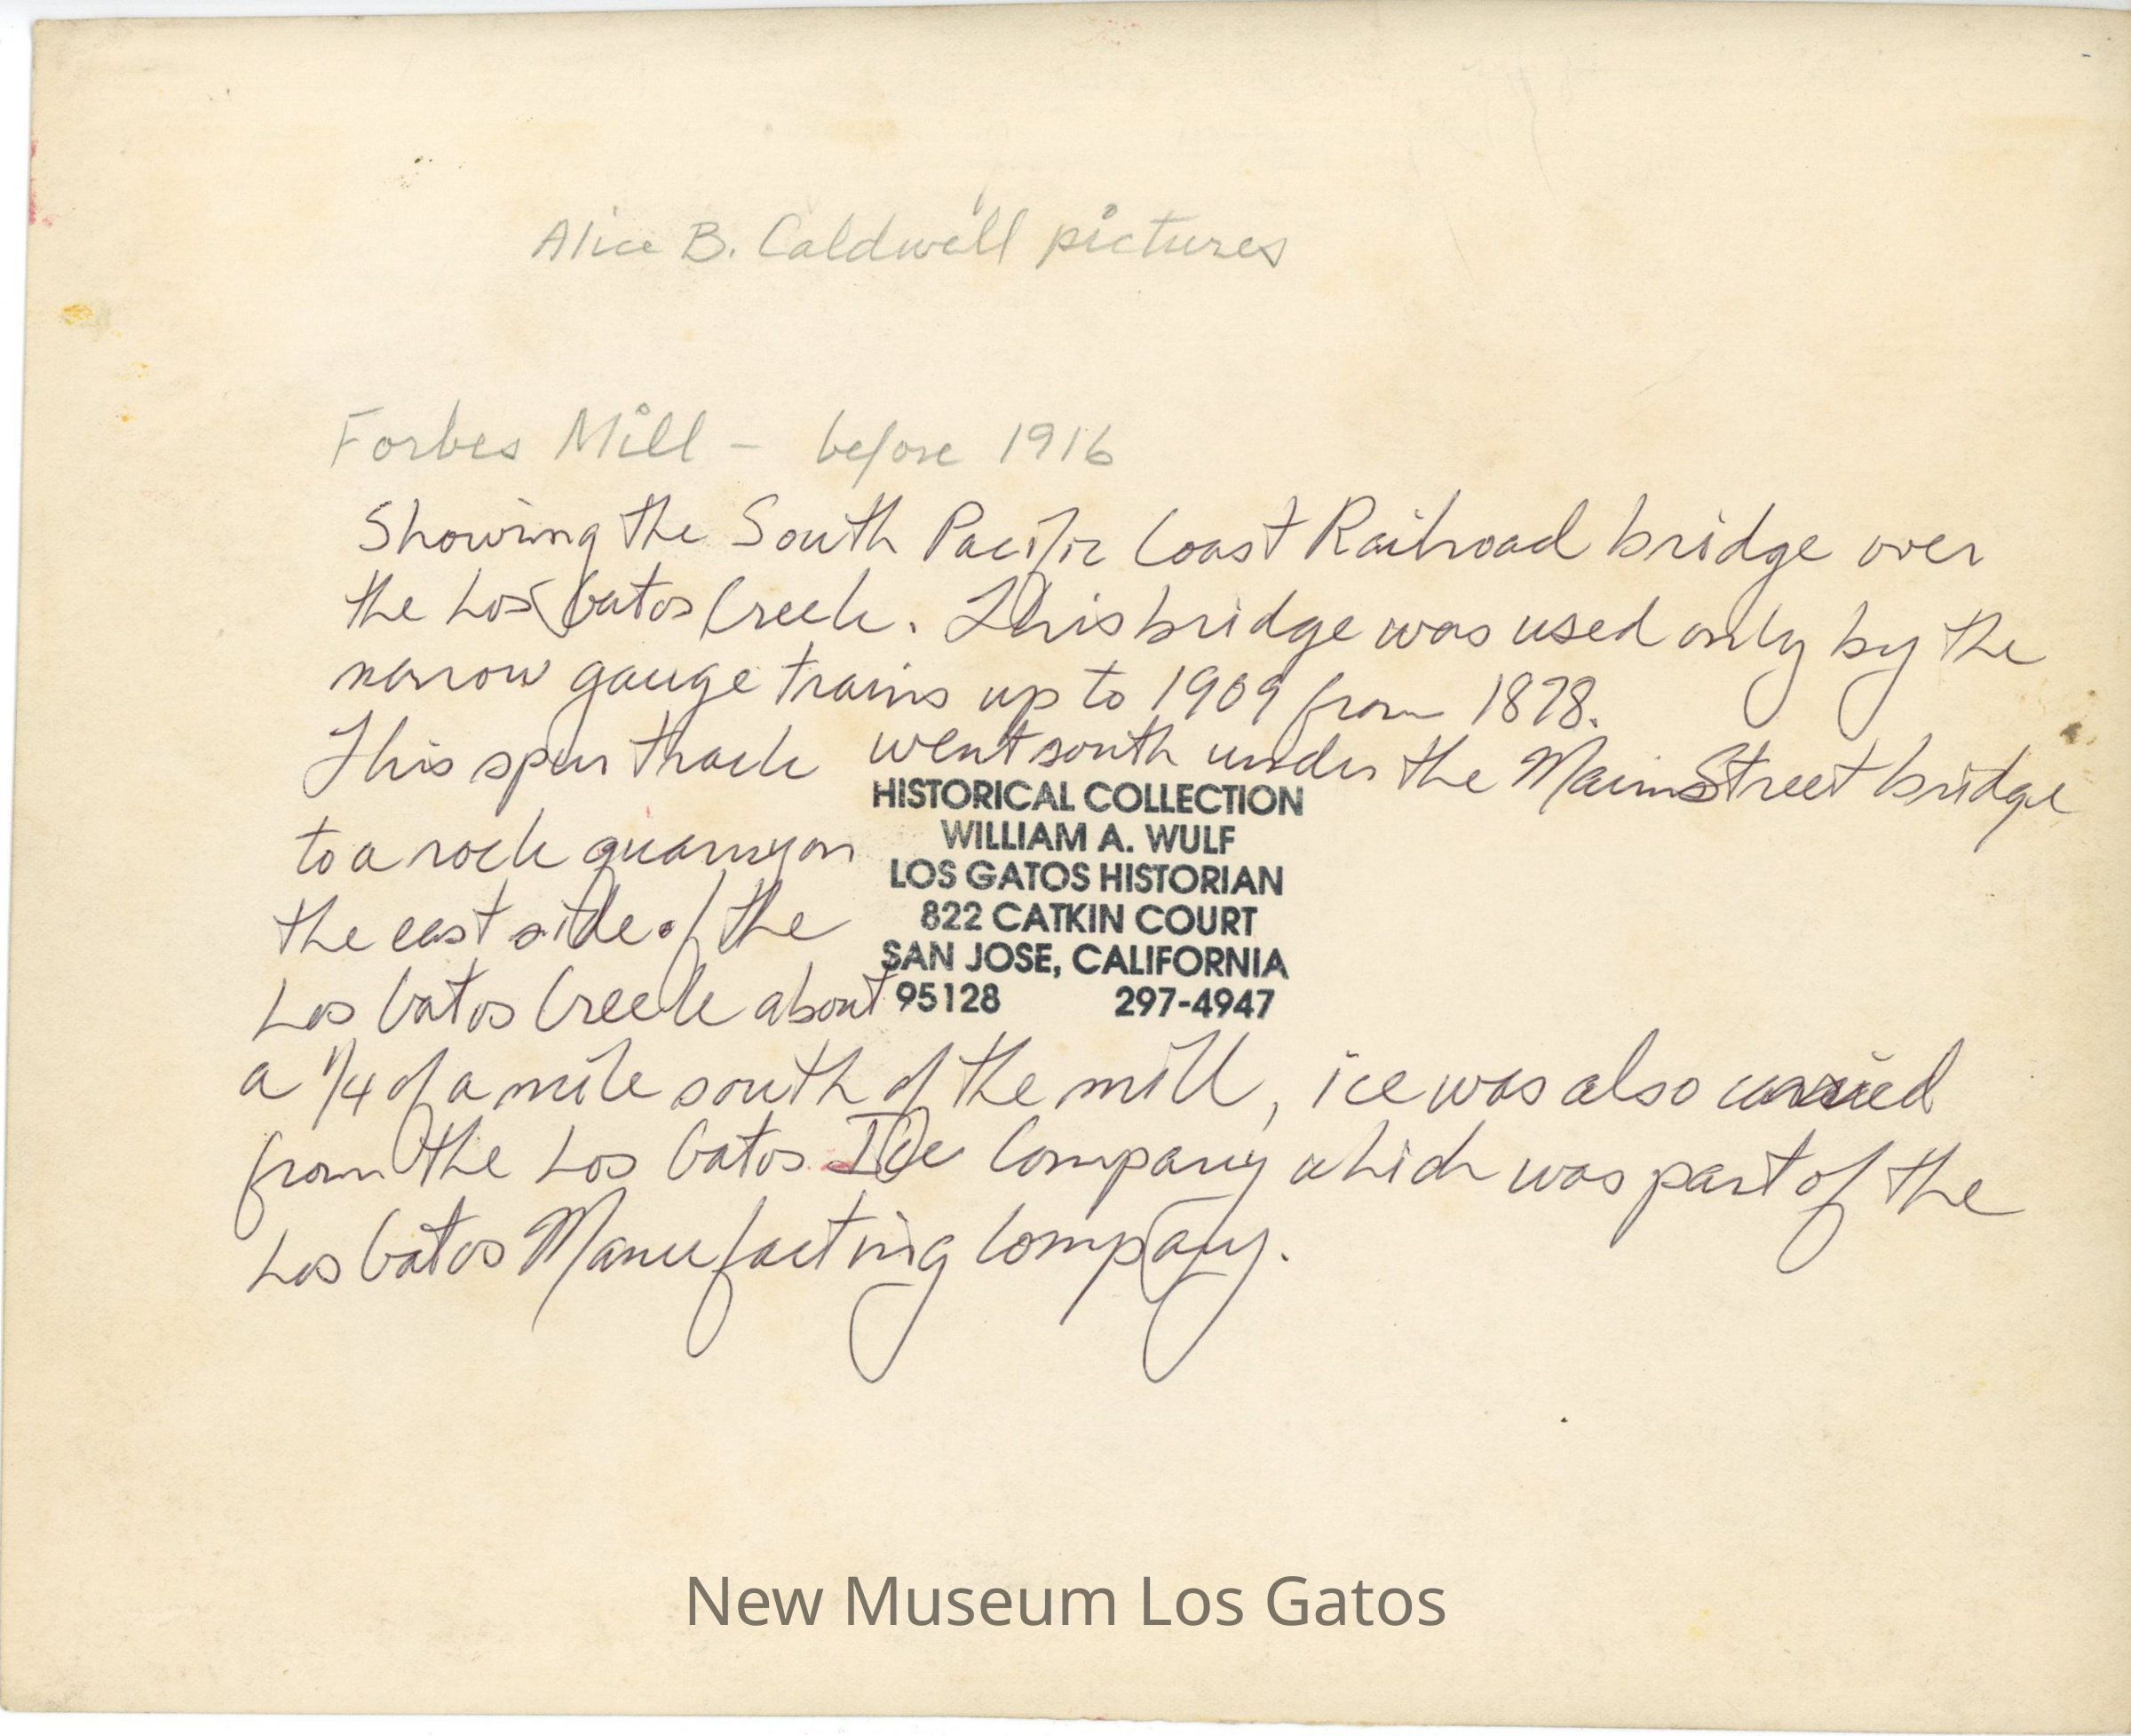 Alice B. Caldwell pictures
Forbes Mill - before 1916
Showing the South Pacific Coast Railroad bridge over
the Los Gatos Creek. This bridge was used only by the
narrow gauge trains up to 1909 from 1878.
This spur track went south under the Main Street bridge
to a rock quarry on
the east side of the
Los Gatos Creek about
HISTORICAL COLLECTION
WILLIAM A. WULF
LOS GATOS HISTORIAN
822 CATKIN COURT
SAN JOSE, CALIFORNIA
95128 297-4947
a 1/4 of a mile south of the mill, ice was also carried
from the Los Gatos Ice Company which was part of the
Los Gatos Manufacting Company.
New Museum Los Gatos